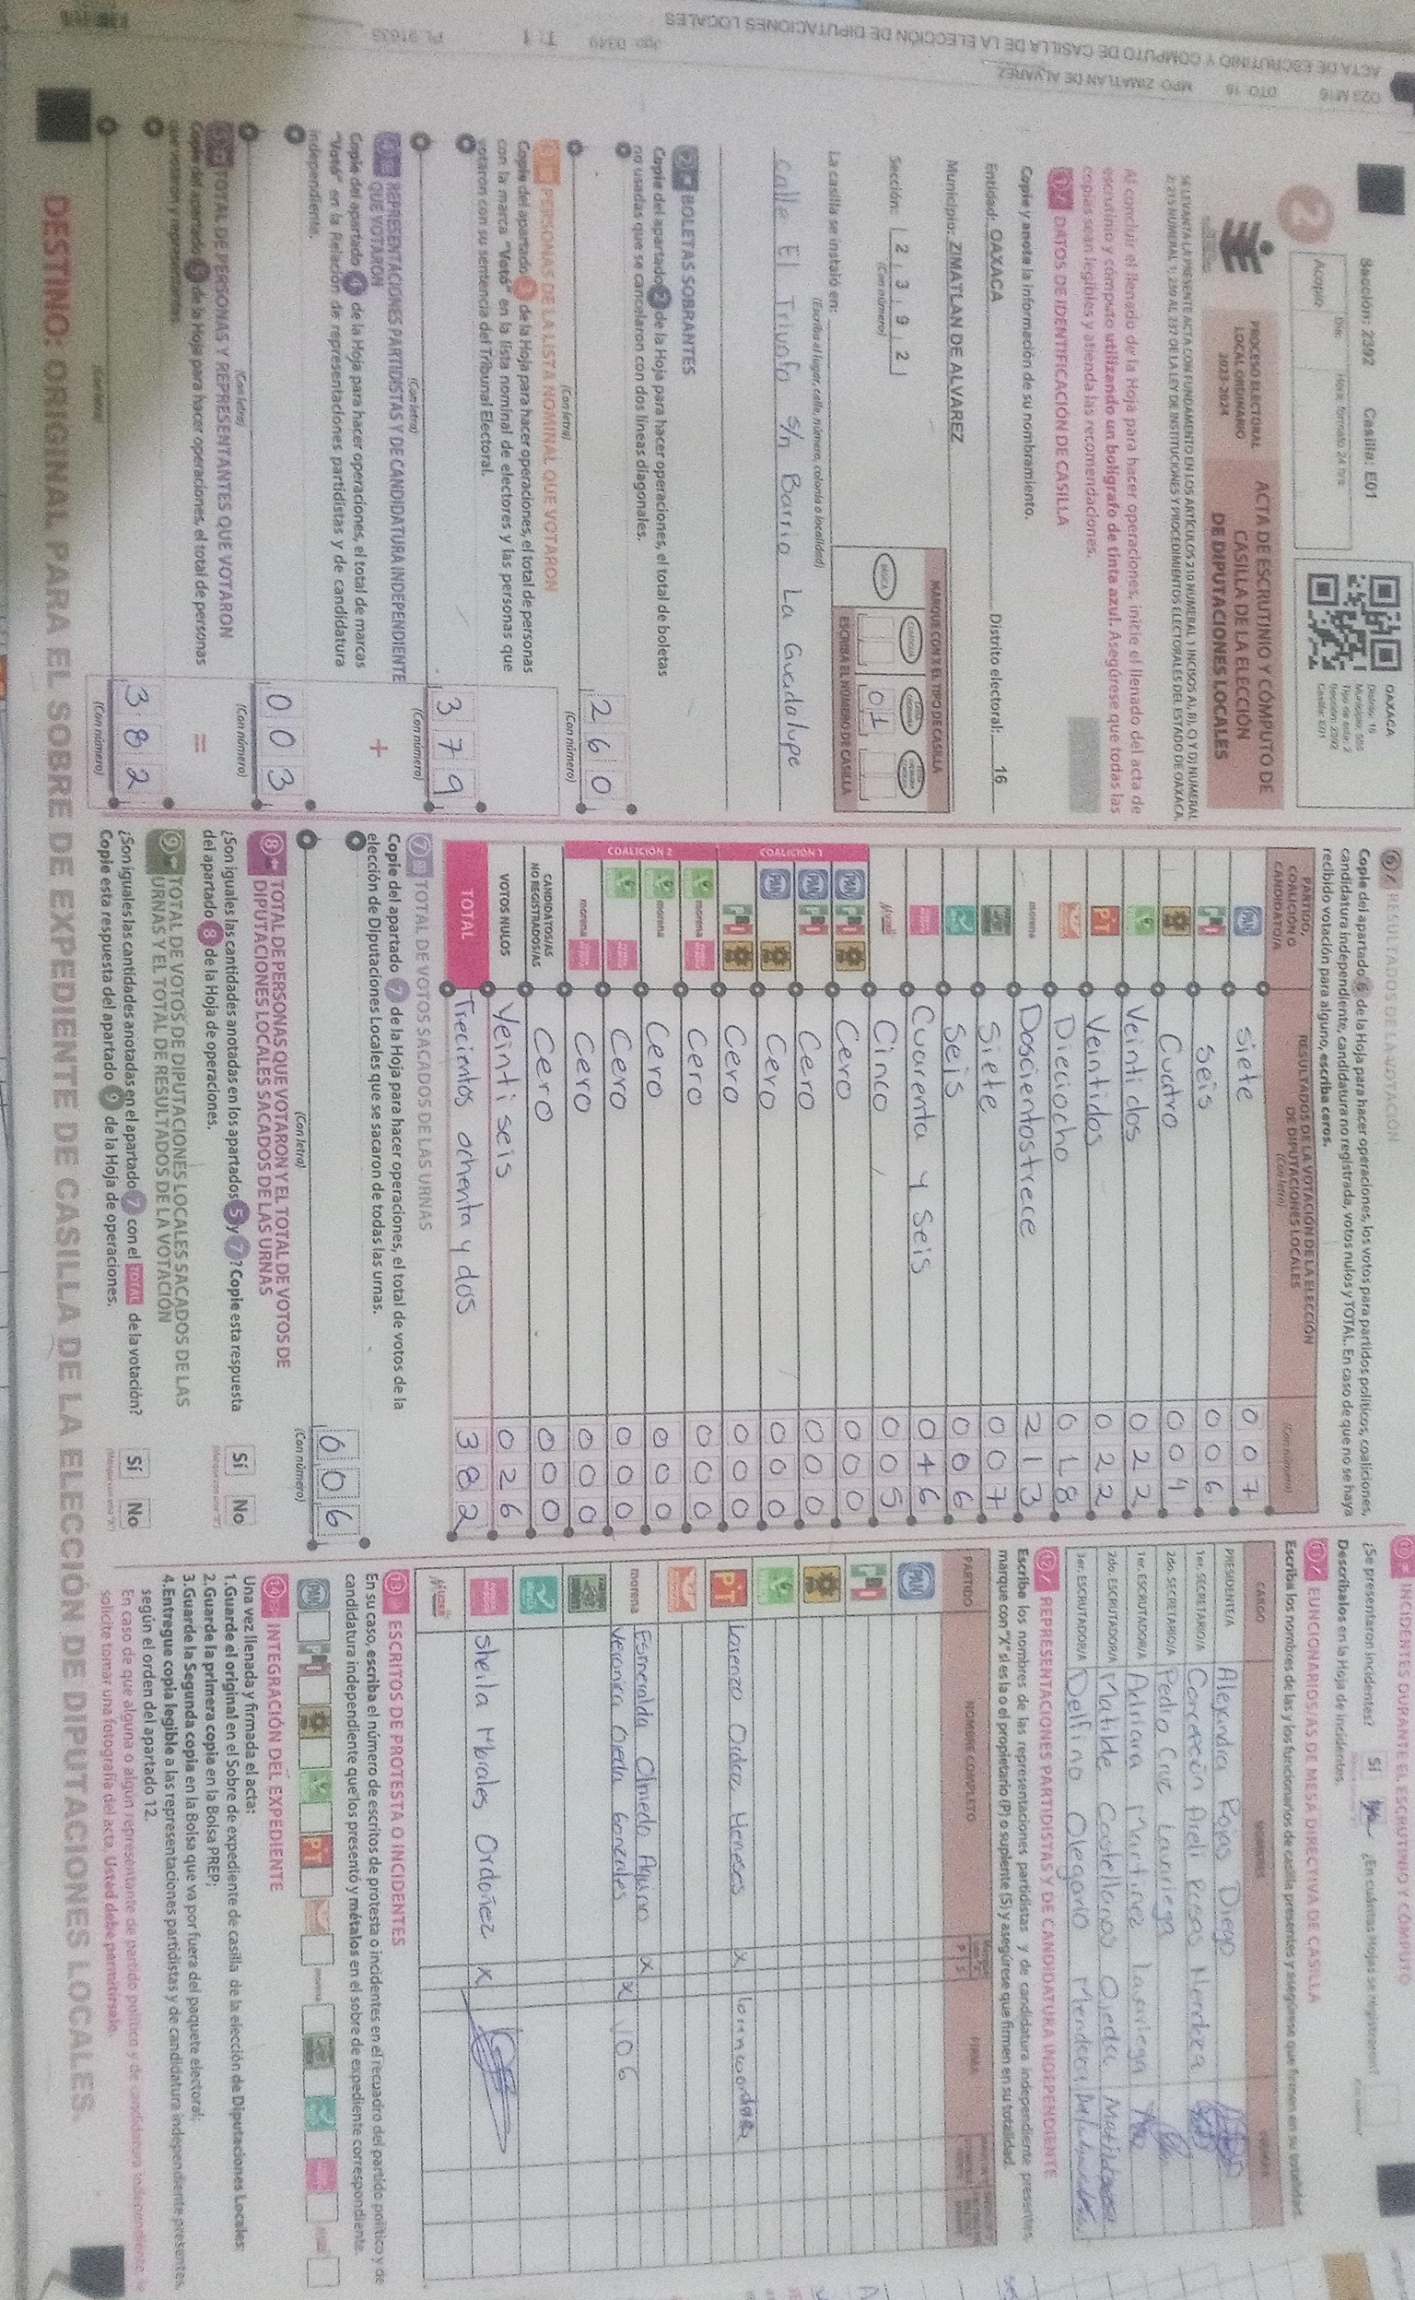 ACTA DE ESCRUTINIO Y CÓMPUTO DE CASILLA DE LA ELECCIÓN DE DIPUTACIONES LOCALES
DTO: 16 MPO: ZIMATLAN DE ALVAREZ
Sección: 2392 Casilla: E01
OAXACA
Distrito: 16
Sección: 2392
Casilla: E01
2
Acopio
Día:
Hora: formato 24 hrs.
PROCESO ELECTORAL
LOCAL ORDINARIO
2023-2024
ACTA DE ESCRUTINIO Y CÓMPUTO DE
CASILLA DE LA ELECCIÓN
DE DIPUTACIONES LOCALES
Al concluir el llenado de la Hoja para hacer operaciones, inicie el llenado del acta de
escrutinio y cómputo utilizando un bolígrafo de tinta azul. Asegúrese que todas las
copias sean legibles y atienda las recomendaciones.
1 DATOS DE IDENTIFICACIÓN DE CASILLA
Copie y anote la información de su nombramiento.
Entidad: OAXACA Distrito electoral: 16
Municipio: ZIMATLAN DE ALVAREZ
Sección: 2 3 9 2
(Con número)
MARQUE CON X EL TIPO DE CASILLA
BÁSICA
01
ESCRIBA EL NÚMERO DE CASILLA
La casilla se instaló en:
(Escriba el lugar, calle, número, colonia o localidad)
calle El Triunfo s/n Barrio La Guadalupe
2 BOLETAS SOBRANTES
Copie del apartado 2 de la Hoja para hacer operaciones, el total de boletas
no usadas que se cancelaron con dos líneas diagonales.
(Con letra)
260
(Con número)
3 PERSONAS DE LA LISTA NOMINAL QUE VOTARON
Copie del apartado 3 de la Hoja para hacer operaciones, el total de personas
con la marca "Votó" en la lista nominal de electores y las personas que
votaron con su sentencia del Tribunal Electoral.
(Con letra)
379
(Con número)
4 REPRESENTACIONES PARTIDISTAS Y DE CANDIDATURA INDEPENDIENTE
QUE VOTARON
+
Copie del apartado 4 de la Hoja para hacer operaciones, el total de marcas
"Votó" en la Relación de representaciones partidistas y de candidatura
independiente.
(Con letra)
003
(Con número)
5 TOTAL DE PERSONAS Y REPRESENTANTES QUE VOTARON
=
Copie del apartado 5 de la Hoja para hacer operaciones, el total de personas
que votaron y representantes.
(Con letra)
382
(Con número)
6 RESULTADOS DE LA VOTACIÓN
Copie del apartado 6 de la Hoja para hacer operaciones, los votos para partidos políticos, coaliciones,
candidatura independiente, candidatura no registrada, votos nulos y TOTAL. En caso de que no se haya
recibido votación para alguno, escriba ceros.
PARTIDO,
COALICIÓN O
CANDIDATO/A
RESULTADOS DE LA VOTACIÓN DE LA ELECCIÓN
DE DIPUTACIONES LOCALES
(Con letra)
(Con número)
PAN siete 007
PRI seis 006
Cuatro 004
Veintidos 022
PT Veintidos 022
Dieciocho 018
morena Doscientostrece 213
Siete 007
Seis 006
Cuarenta y Seis 046
Cinco 005
COALICIÓN 1
PAN PRI Cero 000
PAN PRI Cero 000
PAN Cero 000
PRI Cero 000
COALICIÓN 2
morena Cero 000
morena Cero 000
Cero 000
morena Cero 000
CANDIDATOS/AS
NO REGISTRADOS/AS
Cero 000
VOTOS NULOS Veinti seis 026
TOTAL Trecientos ochenta y dos 382
7 TOTAL DE VOTOS SACADOS DE LAS URNAS
Copie del apartado 7 de la Hoja para hacer operaciones, el total de votos de la
elección de Diputaciones Locales que se sacaron de todas las urnas.
(Con letra)
006
(Con número)
8 TOTAL DE PERSONAS QUE VOTARON Y EL TOTAL DE VOTOS DE
DIPUTACIONES LOCALES SACADOS DE LAS URNAS
¿Son iguales las cantidades anotadas en los apartados 5 y 7? Copie esta respuesta
del apartado 8 de la Hoja de operaciones.
Sí No
9 TOTAL DE VOTOS DE DIPUTACIONES LOCALES SACADOS DE LAS
URNAS Y EL TOTAL DE RESULTADOS DE LA VOTACIÓN
¿Son iguales las cantidades anotadas en el apartado 7 con el TOTAL de la votación?
Copie esta respuesta del apartado 9 de la Hoja de operaciones.
Sí No
10 INCIDENTES DURANTE EL ESCRUTINIO Y CÓMPUTO
¿Se presentaron incidentes? Sí ¿En cuántas Hojas se registraron?
Descríbalos en la Hoja de incidentes.
11 FUNCIONARIOS/AS DE MESA DIRECTIVA DE CASILLA
Escriba los nombres de las y los funcionarios de casilla presentes y asegúrese que firmen en su totalidad.
CARGO NOMBRE FIRMA
PRESIDENTE/A Alexandra Rojas Diego
1er. SECRETARIO/A Concepción Areli Rosas Mendeza
2do. SECRETARIO/A Pedro Cruz Lauriega
1er. ESCRUTADOR/A Adriana Martinez Lauriega
2do. ESCRUTADOR/A Matilde Castellanos Ojeda
3er. ESCRUTADOR/A Delfino Olegario Mendeza
12 REPRESENTACIONES PARTIDISTAS Y DE CANDIDATURA INDEPENDIENTE
Escriba los nombres de las representaciones partidistas y de candidatura independiente presentes,
marque con "X" si es la o el propietario (P) o suplente (S) y asegúrese que firmen en su totalidad.
PARTIDO NOMBRE COMPLETO P S FIRMA
PAN
PRI
PT Lorenzo Ordaz Meneses X
morena Esmeralda Olmedo Aquino X
Veronica Ojeda Gonzales X
Sheila Morales Ordoñez X
13 ESCRITOS DE PROTESTA O INCIDENTES
En su caso, escriba el número de escritos de protesta o incidentes en el recuadro del partido político y de
candidatura independiente que los presentó y métalos en el sobre de expediente correspondiente.
PAN PRI PT morena
14 INTEGRACIÓN DEL EXPEDIENTE
Una vez llenada y firmada el acta:
1.Guarde el original en el Sobre de expediente de casilla de la elección de Diputaciones Locales;
2.Guarde la primera copia en la Bolsa PREP;
3.Guarde la Segunda copia en la Bolsa que va por fuera del paquete electoral;
4.Entregue copia legible a las representaciones partidistas y de candidatura independiente presentes,
según el orden del apartado 12.
En caso de que alguna o algún representante de partido político y de candidatura independiente
solicite tomar una fotografía del acta, Usted debe permitírselo.
DESTINO: ORIGINAL PARA EL SOBRE DE EXPEDIENTE DE CASILLA DE LA ELECCIÓN DE DIPUTACIONES LOCALES.